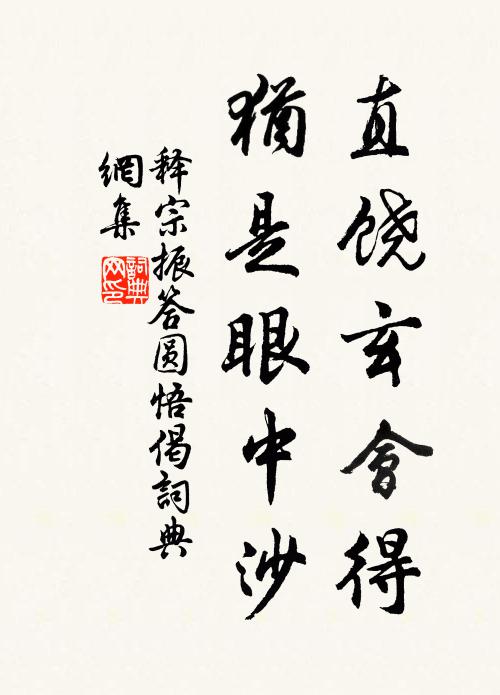 直饶玄會得
猶是眼中沙
释宗振答圆悟偈詞典
網集
詞典
网印